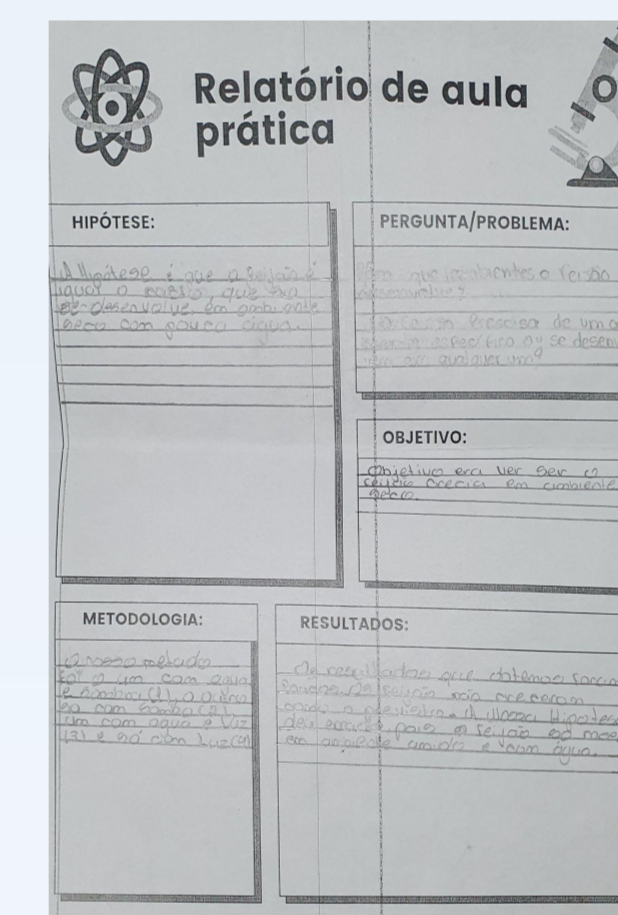 Relatório de aula
prática
HIPÓTESE:
A Hipótese é que o feijão é
igual o
se desenvolve em ambiente
seco com pouca água.
PERGUNTA/PROBLEMA:
Em que ambientes o feijão
desenvolve?
de um a
específico ou se desen
em qualquer um?
OBJETIVO:
Objetivo era ver ser o
feijão crecia em ambiente
seco.
METODOLOGIA:
O nosso metodo
foi o um com agua
e sombra (1), o outro
só com sombra (2)
um com agua e luz
(3) e só com Luz (4)
RESULTADOS:
Os resultados que obtemos
feijão não creceram
A Hipotes
deu errado pois o feijão só
em ambiente umido e com água.